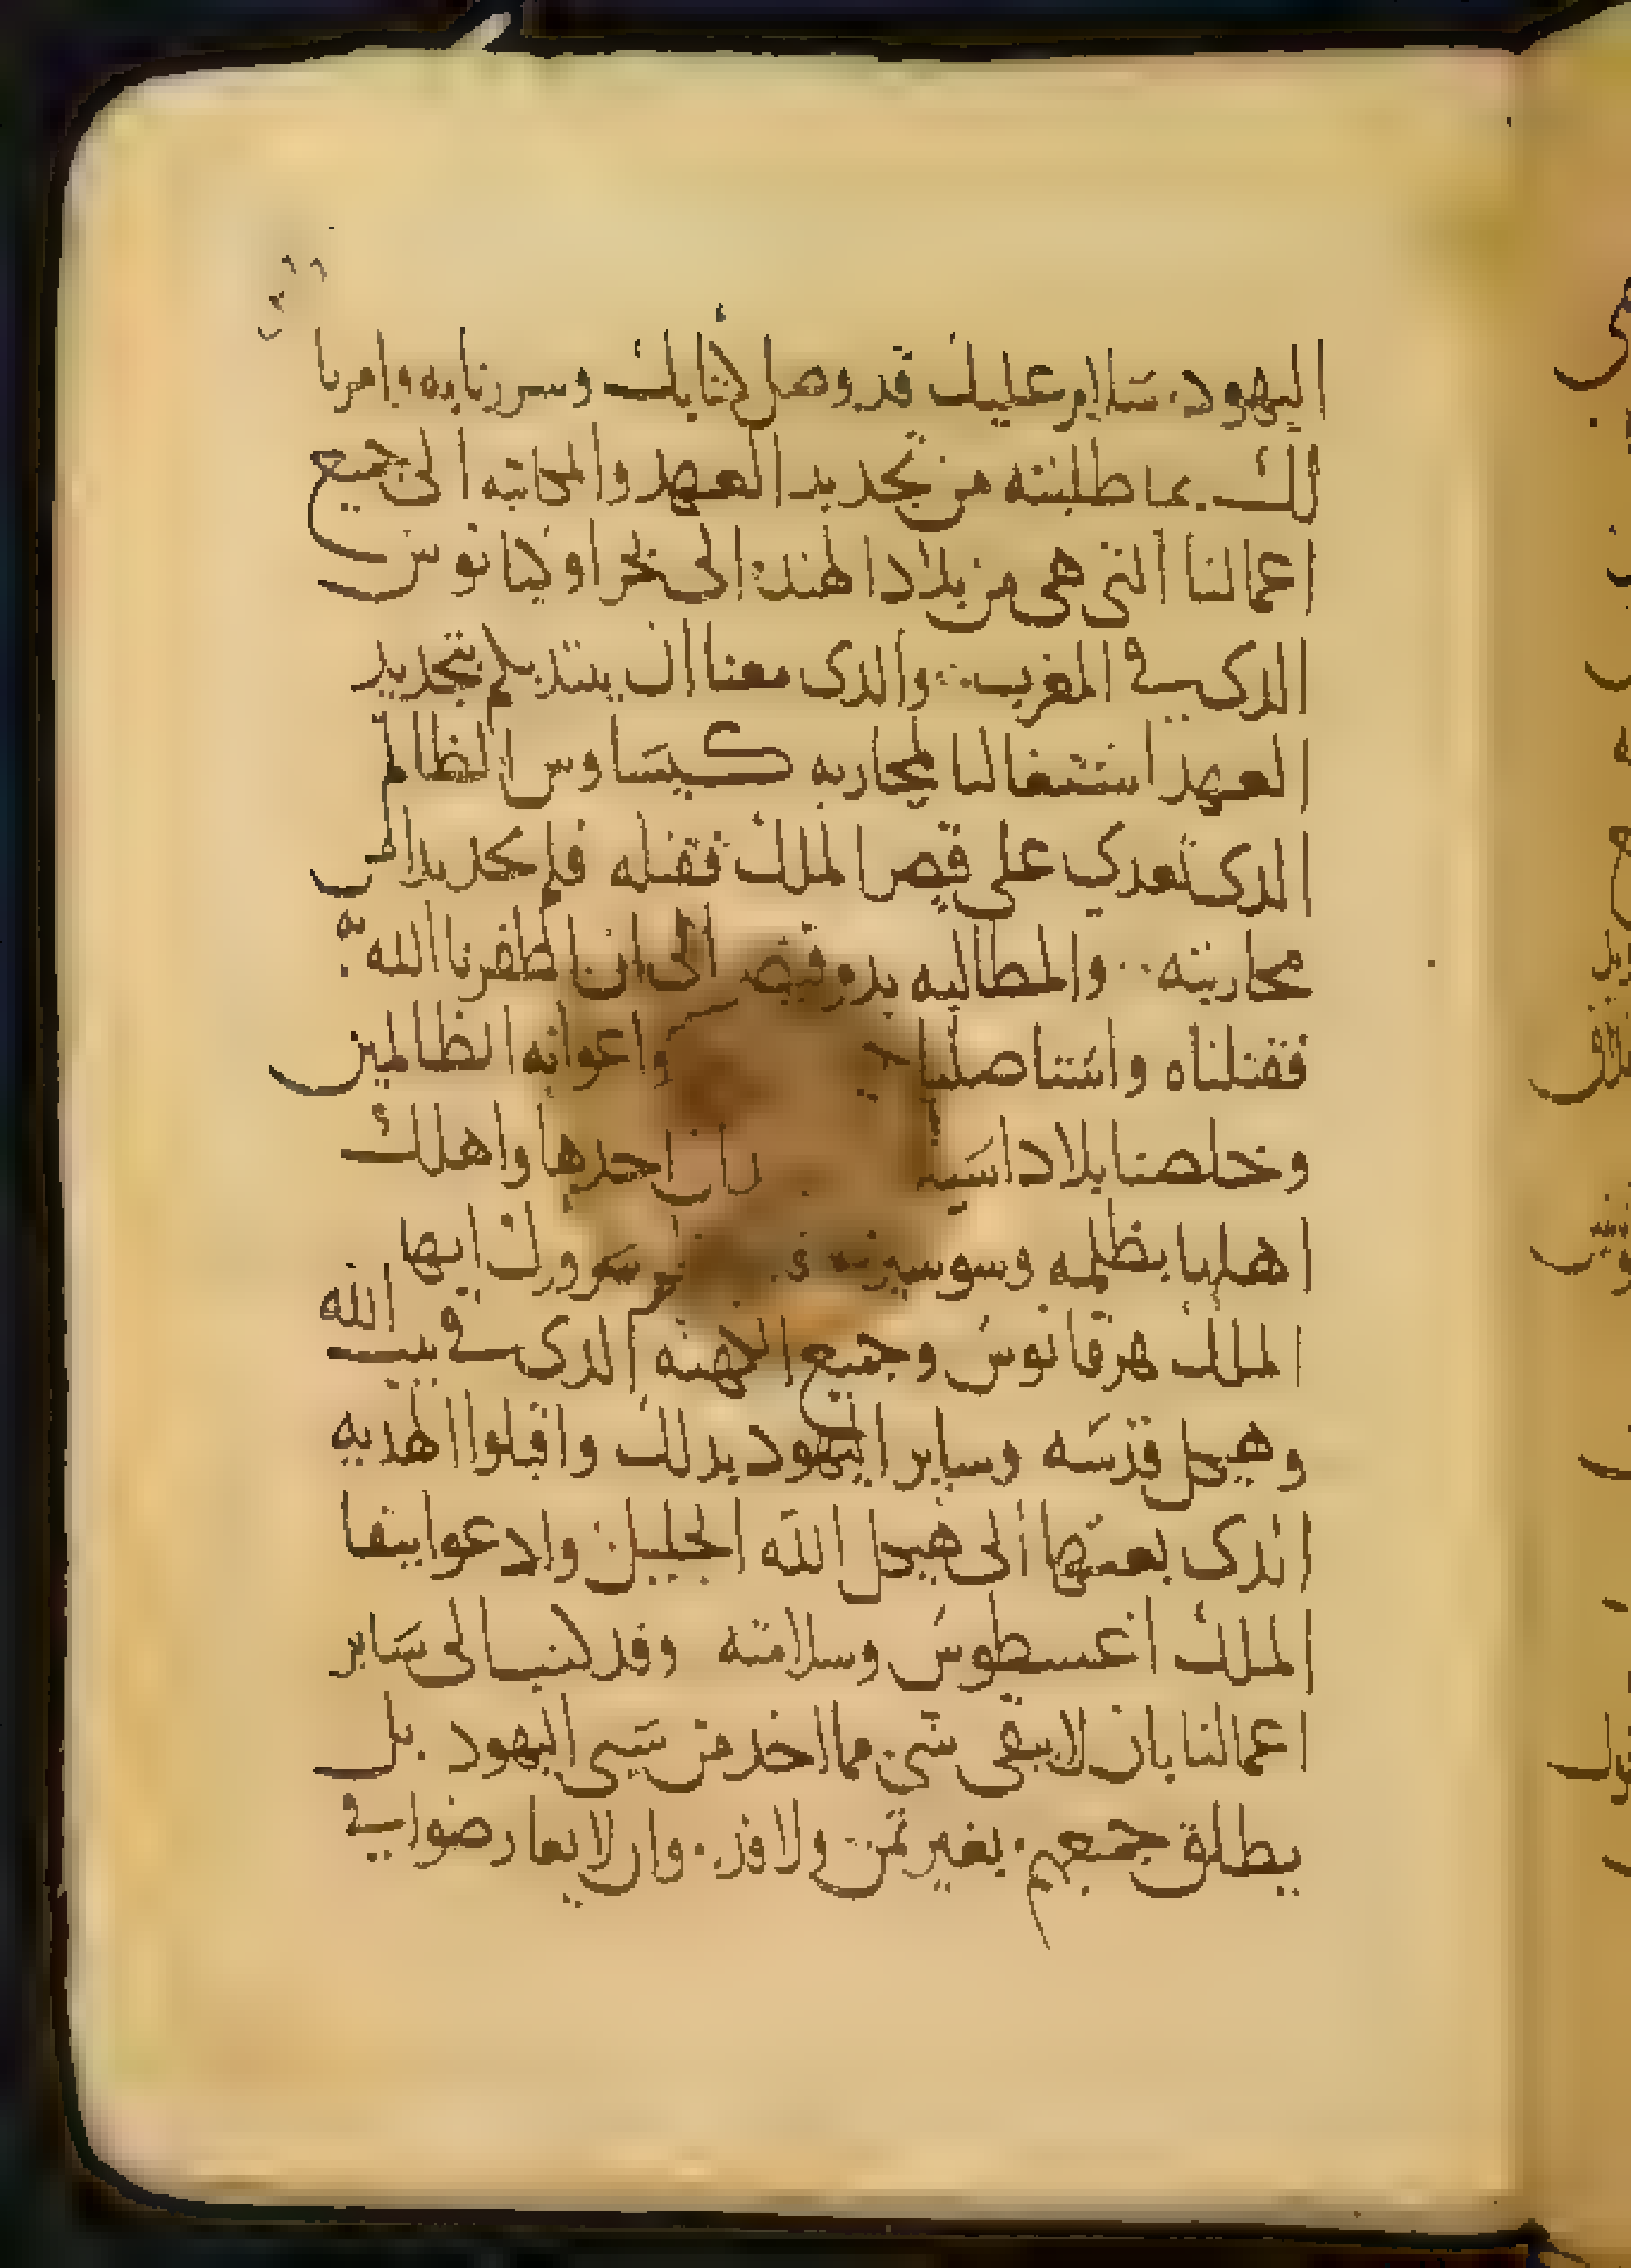 اليهود. سلام عليك قد وصل كتابك وسررنا به وامرنا
لك بما طلبته من تجديد العهد والمحاتبه الى جميع
اعمالنا التى هى من بلاد الهند الى بحر اوكيانوس
الدى فى المغرب والدى معنا ان يبتد بكم بتجديد
العهد اشتغالنا لمحاربه كيساوس الظالم
الدى تعدي على قيصر الملك فقتله فلم
محاربته والمطالبه بدم قيصر الى ان اظفرنا الله به
فقتلناه واستاصلنا واعوانه الظالمين
وخلصنا بلاد اسيه احدها واهلك
اهلها بظلمه وسوسيرته سرورك ايها
الملك هرقانوس وجميع الكهنه الدى فى بيت الله
وهيكل قدسه وساير اليهود بدلك واقبلوا الهديه
الدى بعثها الى هيكل الله الجليل وادعوا ببقا
الملك اغسطوس وسلامته وقد كتبنا الى ساير
اعمالنا بان لا يبقى شى مما اخد من سبى اليهود . بل
يطلق جمعهم . بغير ثمن ولا فدا . وان لا يعارضوا فى